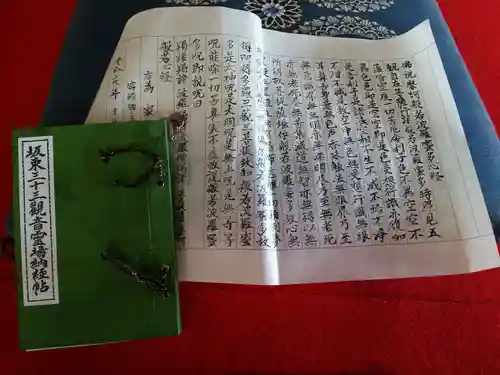 佛説摩訶般若波羅蜜多心経
観自在菩薩行深般若波羅蜜多時照見五
蘊皆空度一切苦厄舎利子色不異空空不
異色色即是空空即是色受想行識亦復如
是舎利子是諸法空相不生不滅不垢不浄
不増不減是故空中無色無受想行識無眼
耳鼻舌身意無色声香味触法無眼界乃至
無意識界無無明亦無無明尽乃至無老死
亦無老死尽無苦集滅道無智亦無得以無
所得故菩提薩埵依般若波羅蜜多故心無
想究竟涅槃三世諸佛依般若波羅蜜多故
得阿耨多羅三藐三菩提故知般若波羅蜜
多是大神呪是大明呪是無上呪是無等
等呪能除一切苦真実不虚故説般若波羅蜜
多呪即説呪曰
羯諦羯諦波羅
般若心経
為
坂東三十三觀音霊場納経帖